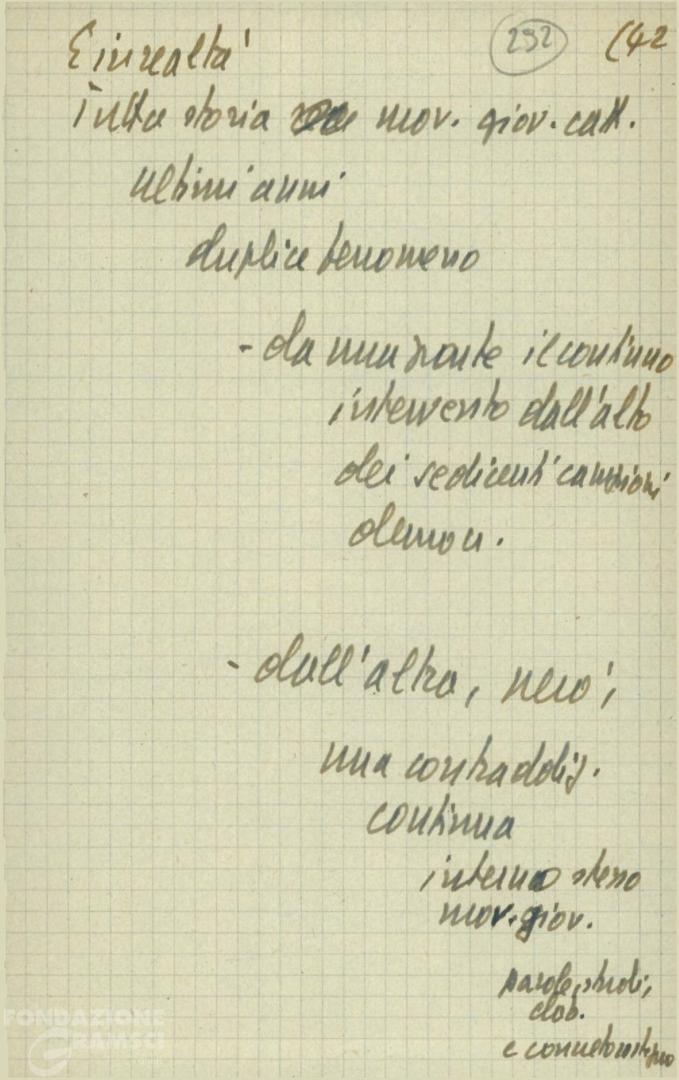 232 (42
E in realtà
Tutta storia mov. giov. catt.
ultimi anni
duplice fenomeno
- da una parte il continuo
intervento dall'alto
dei sedicenti campioni
democr.
- dall'altra, però,
una contraddiz.
continua
interno stesso
mov. giov.
parole, studi,
elab.
e concreto
FONDAZIONE
GRAMSCI